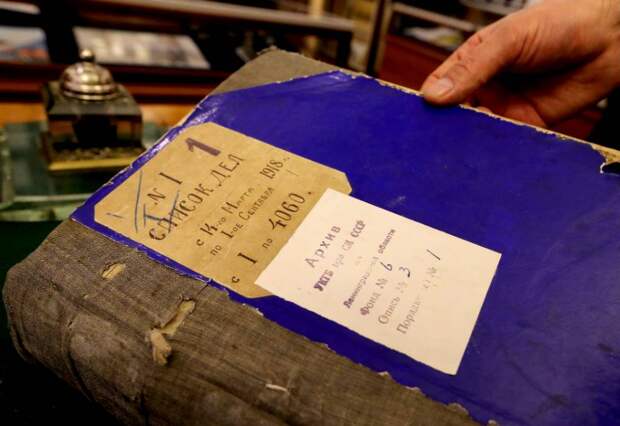 N 1 1
СПИСОК ДЕЛ
с 14-го Марта 1918 г.
по 1-ое Сентября
с 1 по 4060.
Архив
УКГБ при СМ СССР
по
Ленинградской области
Фонд № 6
Опись № 3
Порядковый № 1